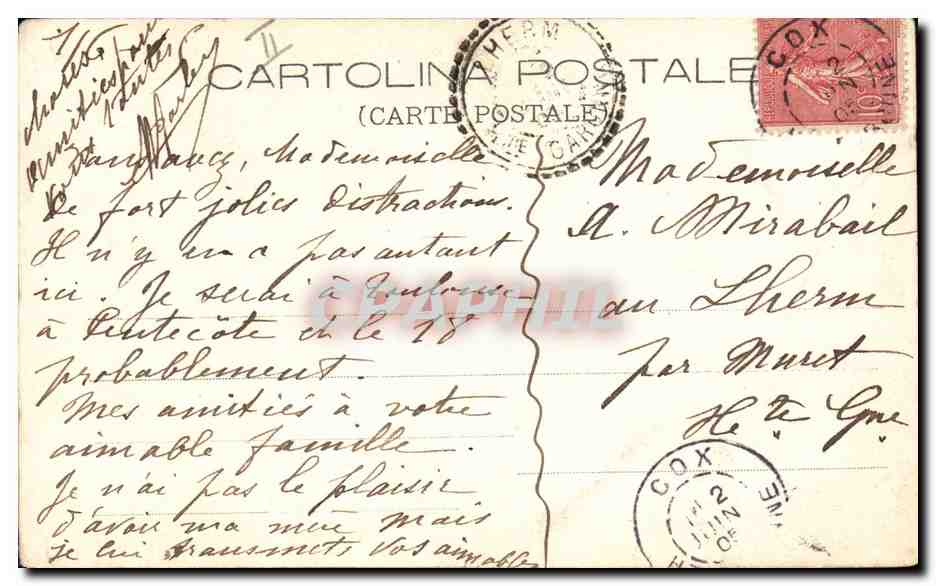 CARTOLINA POSTALE
(CARTE POSTALE)
Mademoiselle
de fort jolies distractions.
Il n'y en a pas autant
ici. Je serai à Toulouse
à Pentecôte et le 18
probablement.
Mes amitiés à votre
aimable famille.
Je n'ai pas le plaisir
d'avoir ma mère mais
je lui transmets vos aimables
choses
amitiés pour
toutes
Mademoiselle
A. Mirabail
au Lherm
par Muret
Hte Gne
LHERM
GARONNE
COX
10
COX
2
JUIN
05
CPAPHIL